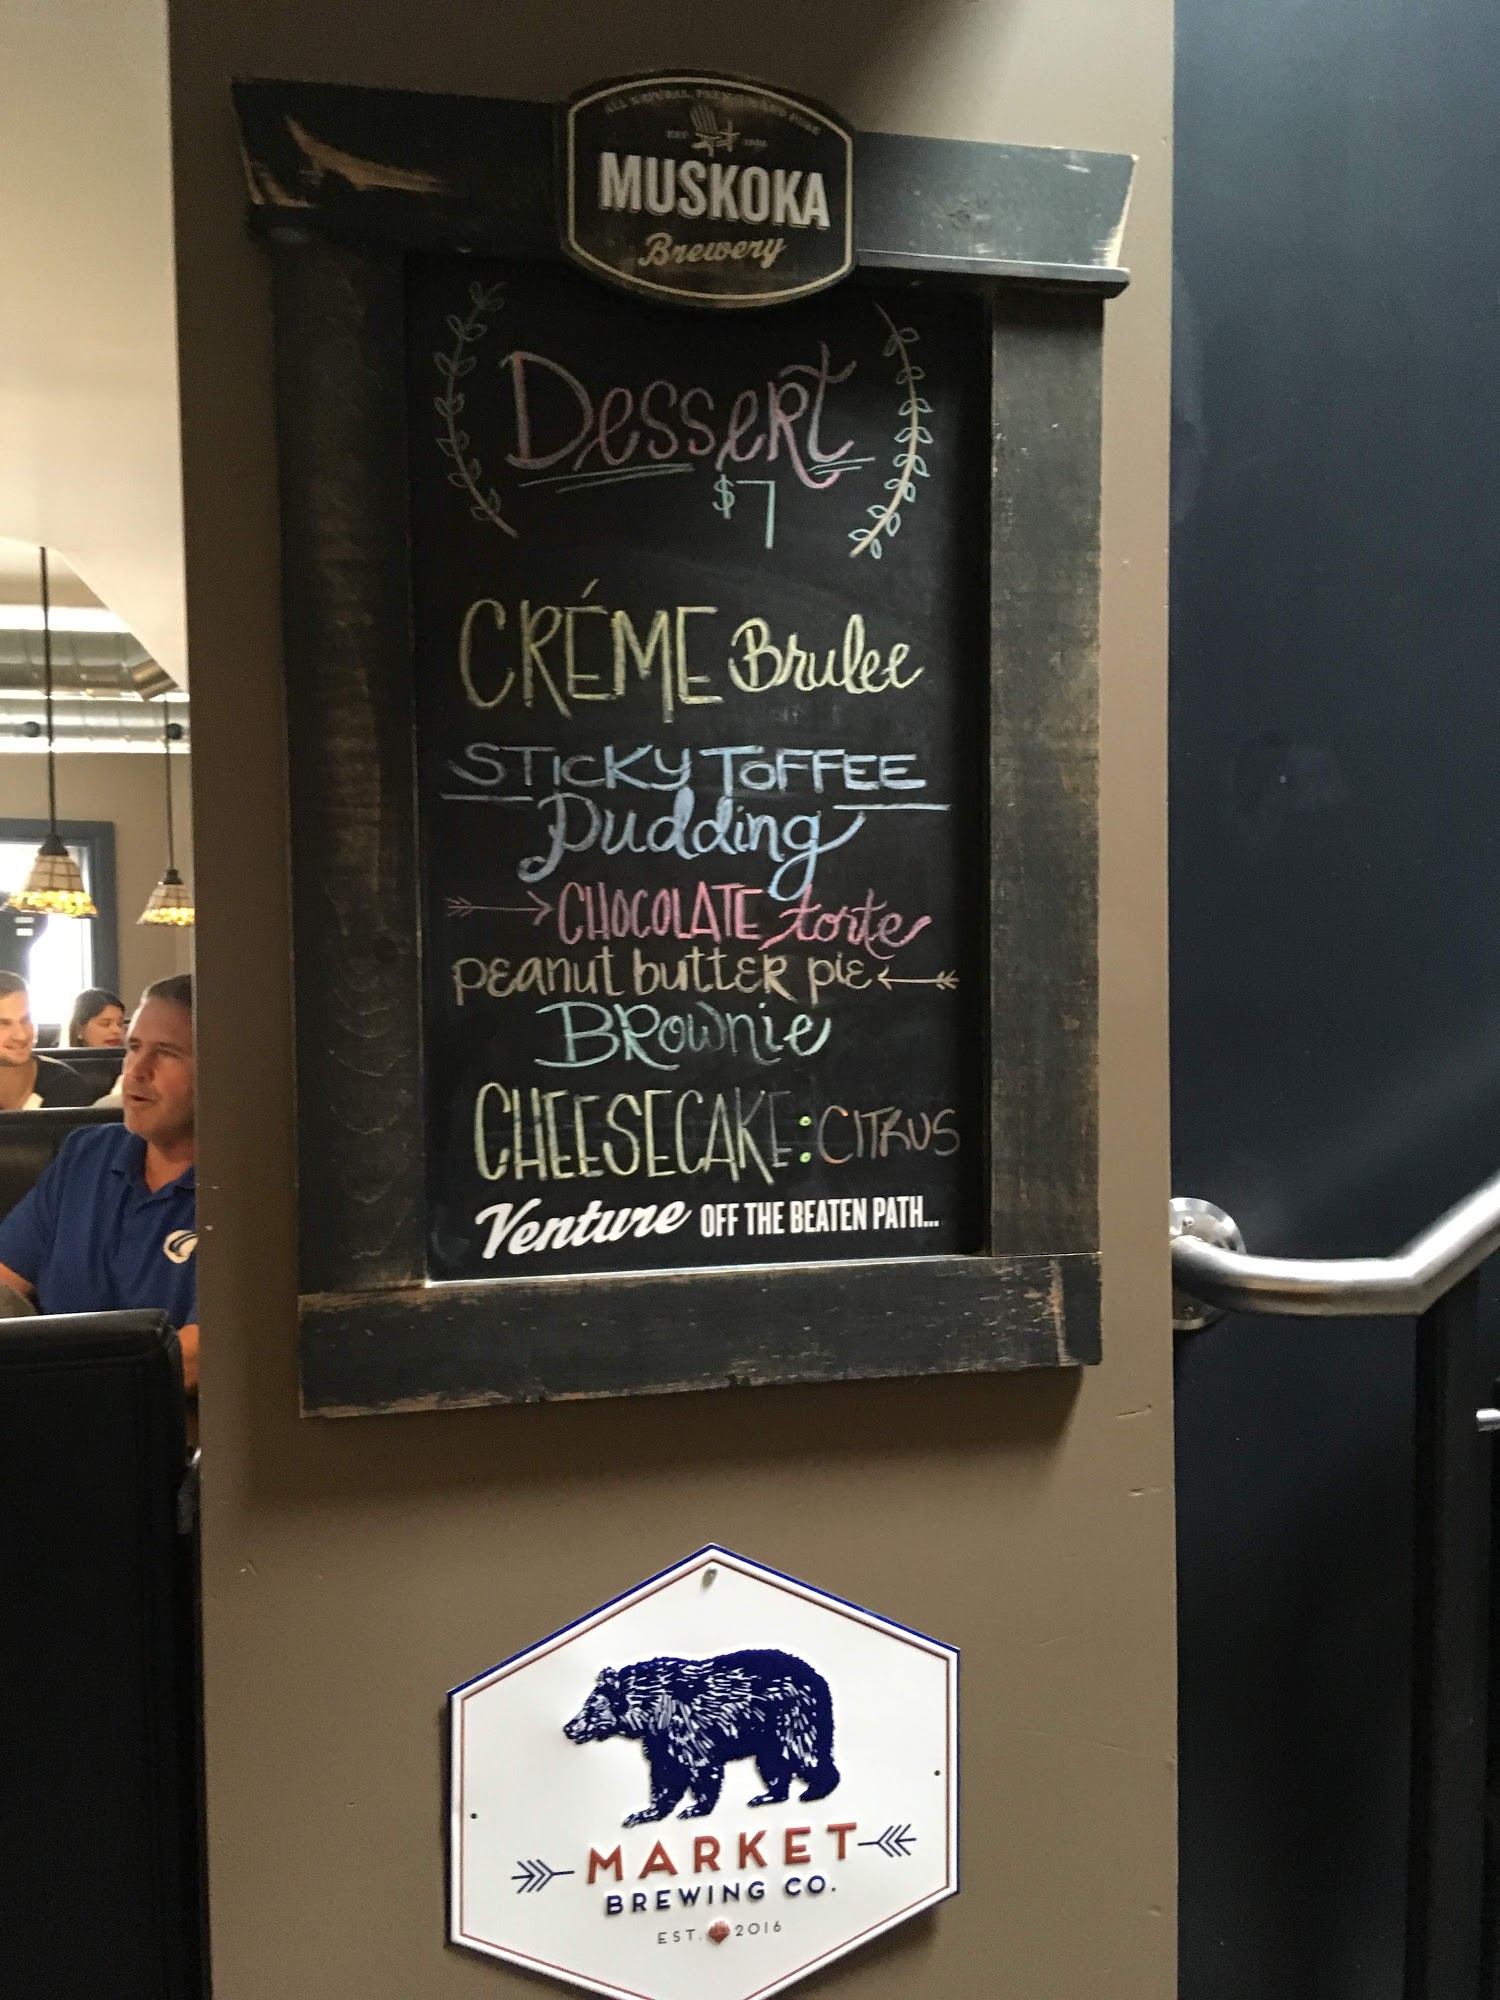 ALL NATURAL, PREMIUM AND PURE
EST
MUSKOKA
Brewery
Dessert
$7
CRÉME Brulee
STICKY TOFFEE
Pudding
CHOCOLATE torte
peanut butter pie
BROWNIE
CHEESECAKE: CITRUS
Venture OFF THE BEATEN PATH...
MARKET
BREWING CO.
EST. 2016